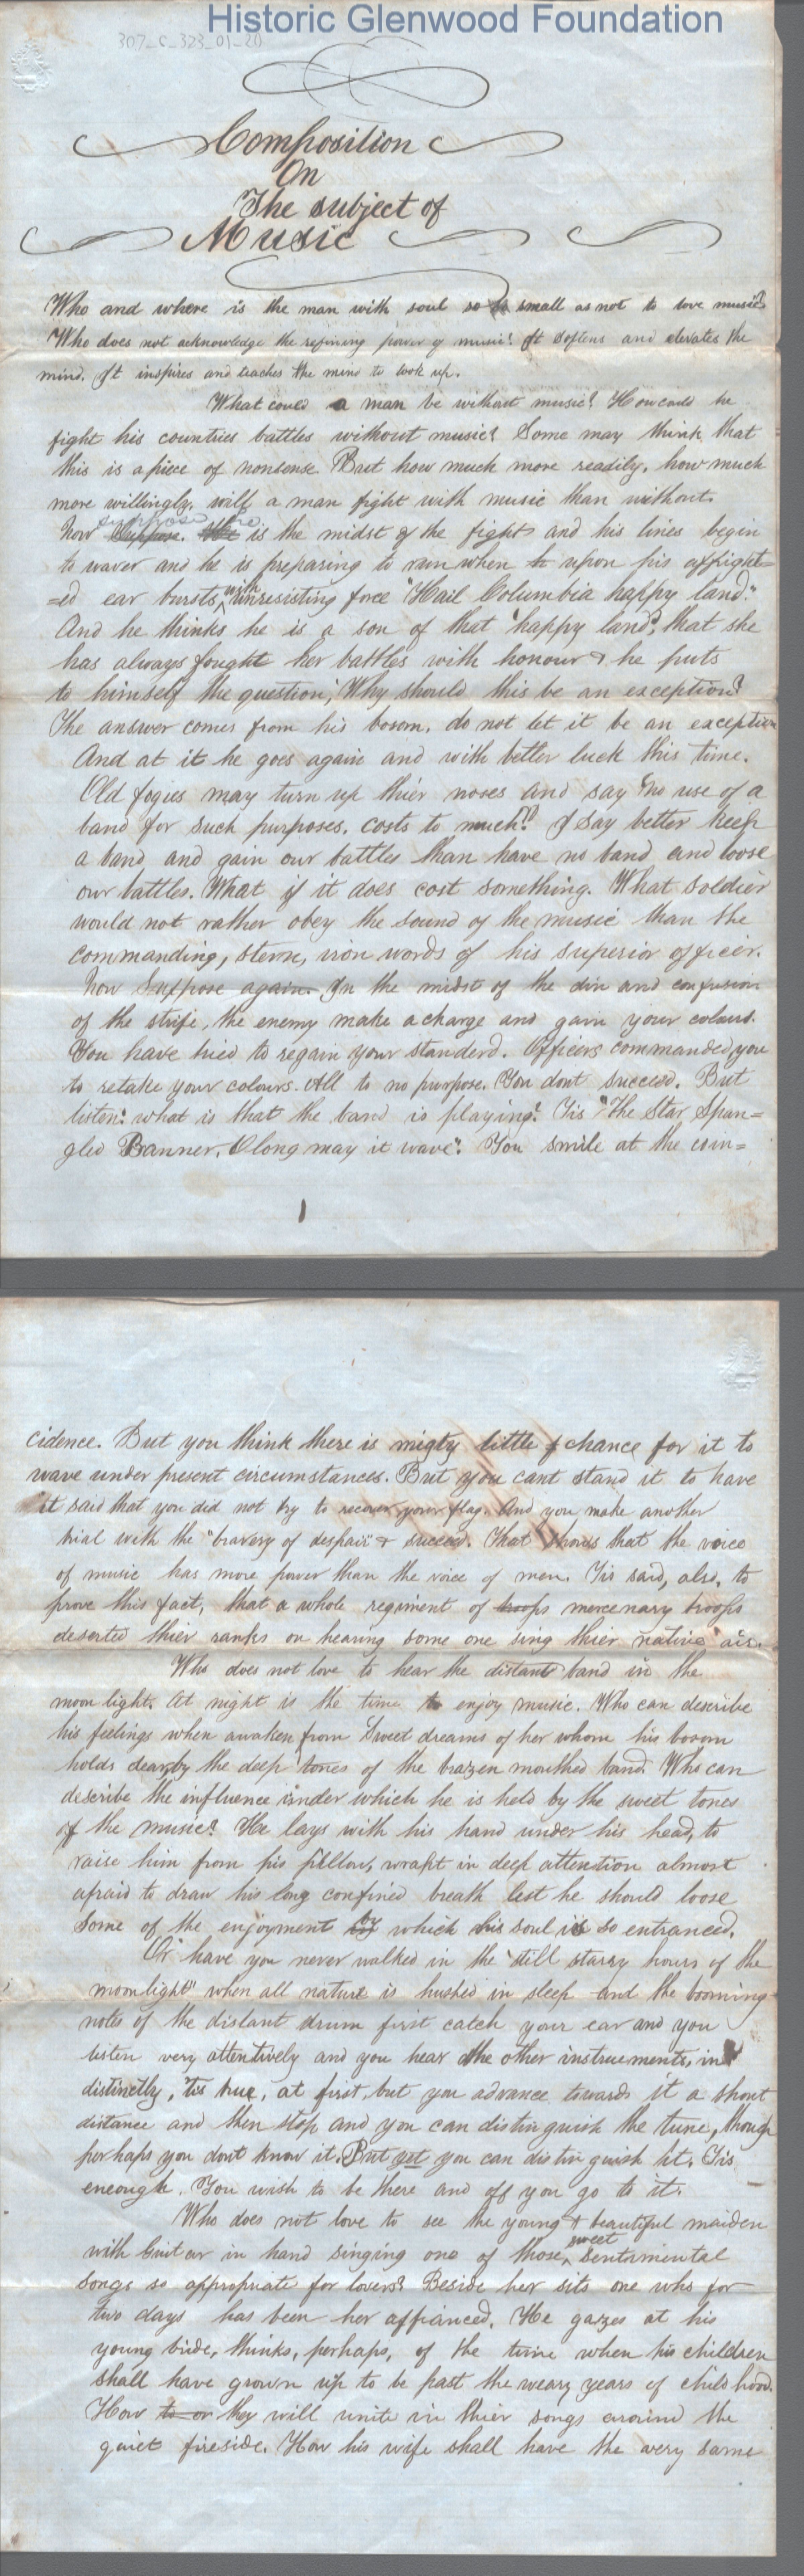 Historic Glenwood Foundation
307_C_323_01-20
Composition
On
The subject of
Music
Who and where is the man with soul so small as not to love music?
Who does not acknowledge the refining power of music! It softens and elevates the
mind. It inspires and teaches the mind to look up.
What could a man be without music? How could he
fight his countries battles without music? Some may think that
this is a piece of nonsense. But how much more readily, how much
more willingly, will a man fight with music than without.
suppose he
Now Suppose. is the midst of the fight and his lines begin
to waver and he is preparing to run when upon his affright=
with
=ed ear bursts unresisting force "Hail Columbia happy land."
And he thinks he is a son of that "happy land", that she
has always fought her battles with honour & he puts
to himself the question, Why should this be an exception?
The answer comes from his bosom, do not let it be an exception
And at it he goes again and with better luck this time.
Old fogies may turn up thier noses and say "no use of a
band for such purposes. costs to much!" I say better keep
a band and gain our battles than have no band and loose
our battles. What if it does cost something. What soldier
would not rather obey the sound of the music than the
commanding, stern, iron words of his superior officer.
Now Suppose again. In the midst of the din and confusion
of the strife, the enemy make a charge and gain your colours.
You have tried to regain your standerd. Officers commanded you
to retake your colours. All to no purpose. You dont succeed. But
listen! what is that the band is playing? Tis "The Star Span=
gled Banner. O long may it wave". You smile at the coin=
1
cidence. But you think there is migty little chance for it to
wave under present circumstances. But you cant stand it to have
it said that you did not try to recover your flag. And you make another
trial with the "bravery of despair" & succeed. That shows that the voice
of music has more power than the voice of men. Tis said, also, to
prove this fact, that a whole regiment of troops mercenary troops
deserted thier ranks on hearing some one sing thier native air.
Who does not love to hear the distant band in the
moon light. At night is the time to enjoy music. Who can describe
his feelings when awaken from Sweet dreams of her whom his bosom
holds dear, by the deep tones of the brazen mouthed band. Who can
describe the influence under which he is held by the sweet tones
of the music? He lays with his hand under his head, to
raise him from his pillow, wrapt in deep attention almost
afraid to draw his long confined breath lest he should loose
Some of the enjoyment by which his soul is so entranced.
Or have you never walked in the "still starry hours of the
moonlight" when all nature is hushed in sleep and the booming
notes of the distant drum first catch your ear and you
listen very attentively and you hear the other instruements, in
distinctly, 'tis true, at first, but you advance towards it a short
distance and then stop and you can distinguish the tune, though
perhaps you dont know it. But yet you can distinguish it. Tis
eneough. You wish to be there and off you go to it.
Who does not love to see the young & beautiful maiden
sweet
with Guitar in hand singing one of those sentimental
songs so appropriate for lovers? Beside her sits one who for
two days has been her affianced. He gazes at his
young bride, thinks, perhaps, of the time when his children
shall have grown up to be past the weary years of child hood.
How to or they will unite in thier songs around the
quiet fireside. How his wife shall have the very same